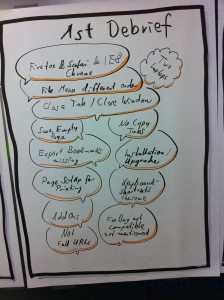 1st Debrief
Firefox & Safari & IE8
Chrome
Two
File Menu different order
Close Tab / Close Window
Some Empty
Page
No Copy
Tabs
Export Bookmarks
missing
Installation/
Upgrade
Page SetUp for
Printing
Keyboard-
shortcuts
Add Ons
Not
Full URLs
FireBug not
compatible
not mentioned